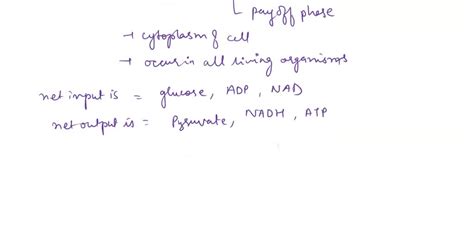 └ payoff phase
→ cytoplasm of cell
→ occurs in all living organisms
net input is = glucose, ADP, NAD
net output is = Pyruvate, NADH, ATP